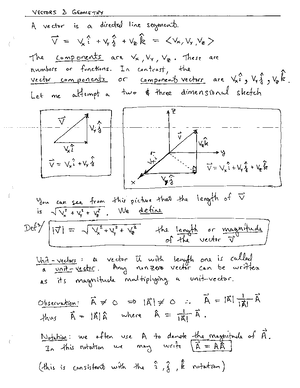 VECTORS & GEOMETRY
A vector is a directed line segment.
V⃗ = Vₓî + Vᵧĵ + V_z k̂ = <Vₓ, Vᵧ, V_z>
The components are Vₓ, Vᵧ, V_z. These are
numbers or functions. In contrast, the
vector components or component vectors are Vₓî, Vᵧĵ, V_z k̂.
Let me attempt a two & three dimensional sketch
V⃗
Vᵧĵ
Vₓî
V⃗ = Vₓî + Vᵧĵ
z
V⃗
y
x
V⃗ = Vₓî + Vᵧĵ + V_z k̂
You can see from this picture that the length of V⃗
is √(Vₓ² + Vᵧ² + V_z²). We define
Defⁿ/ |V⃗| = √(Vₓ² + Vᵧ² + V_z²) the length or magnitude
of the vector V⃗
Unit-vectors: A vector u⃗ with length one is called
a unit-vector. Any nonzero vector can be written
as its magnitude multiplying a unit-vector.
Observation: A⃗ ≠ 0 ⇒ |A⃗| ≠ 0 ∴ A⃗ = |A⃗| 1/|A⃗| A⃗
thus A⃗ = |A⃗| Â where Â = 1/|A⃗| A⃗.
Notation: we often use A to denote the magnitude of A⃗.
In this notation we may write A⃗ = AÂ
(this is consistent with the î, ĵ, k̂ notation)